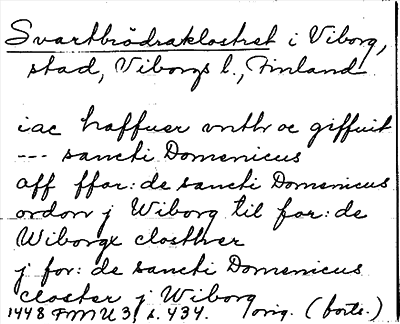 Svartbrödraklostret i Viborg,
stad, Viborgs l., Finland
iac haffuer vnthr oc giffuit
--- sancti Domenicus
aff ffor: de sancti Domenicus
ordon j Wiborg til for: de
Wiborgx closther
j for: de sancti Domenicus
closter j Wiborg
1448 FMU 3, s. 434. orig. (forts.)